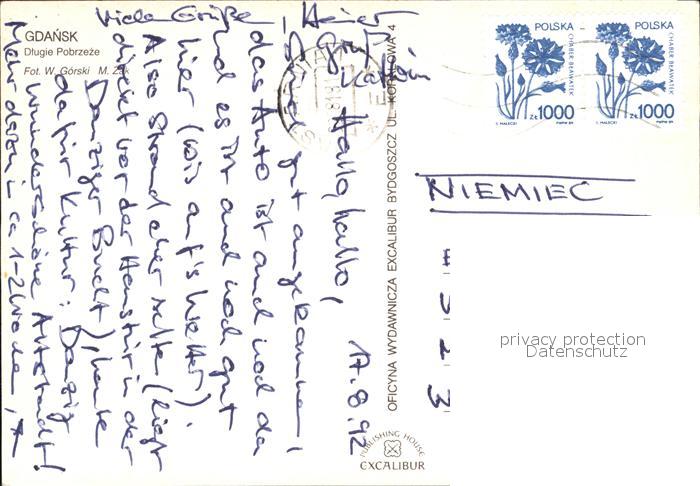 GDAŃSK
Długie Pobrzeże
Fot. W. Górski M. Żak
17.8.92
Hallo, hallo,
Sind gut angekommen,
das Auto ist auch noch da
und es ist auch noch gut
hier (bis auf's Wetter).
Also Strand eher selten (liegt
direkt vor der Haustür in der
Danziger Bucht), heute
dafür Kultur: Danzig
wunderschöne Altstadt!
Mehr dann in ca 1-2 Wochen,
Viele Grüße
OFICYNA WYDAWNICZA EXCALIBUR BYDGOSZCZ UL. KORALOWA 4
PUBLISHING HOUSE
EXCALIBUR
POLSKA
CHABER BŁAWATEK
ZŁ 1000
T. MAŁECKI PWPW 89
POLSKA
CHABER BŁAWATEK
ZŁ 1000
T. MAŁECKI PWPW 89
NIEMIEC
privacy protection
Datenschutz